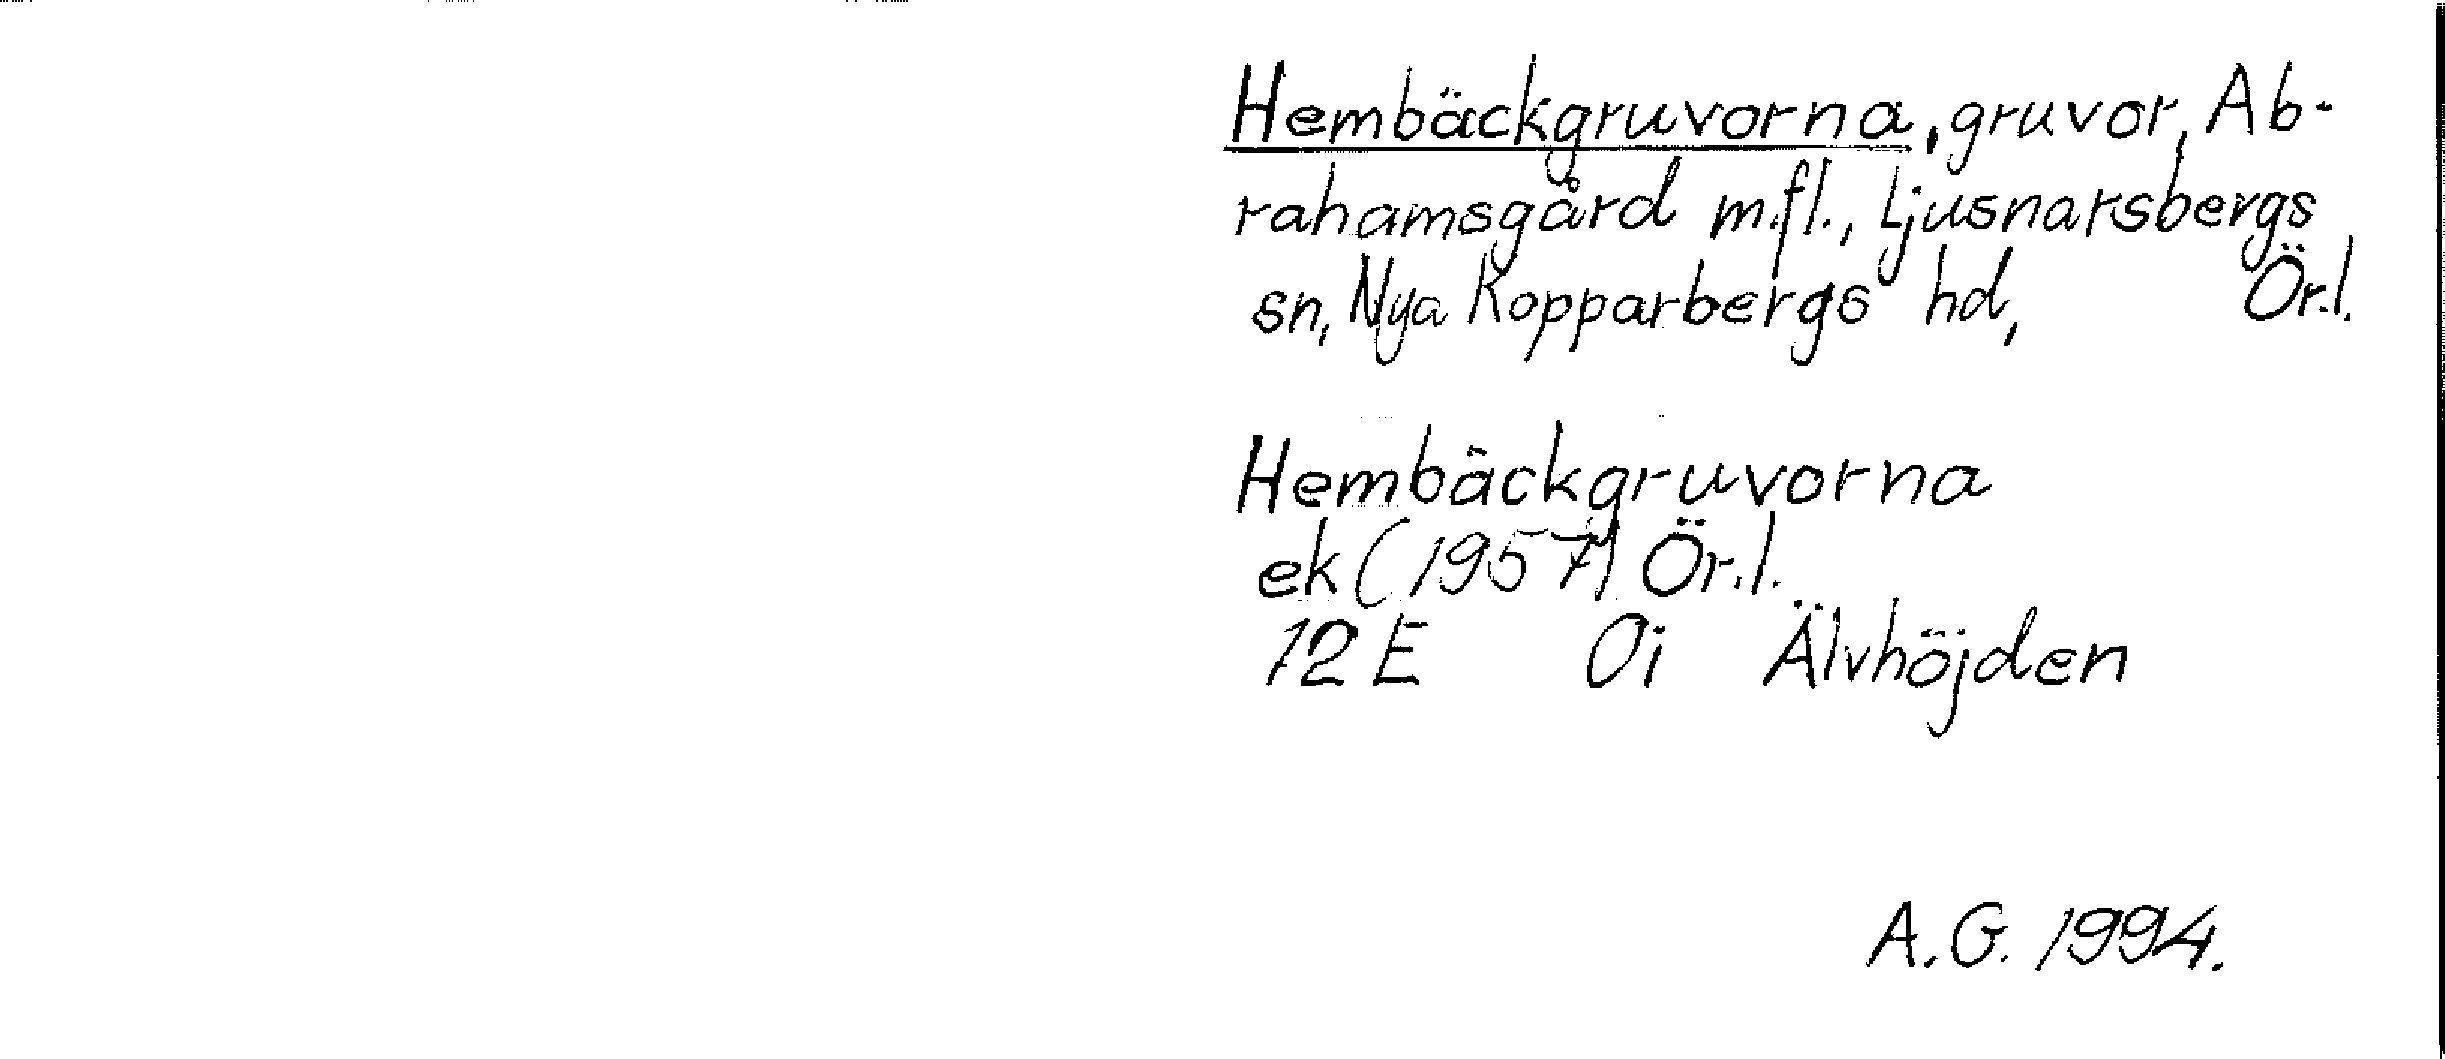 Hembäckgruvorna, gruvor, Ab-
rahamsgård m.fl., Ljusnarsbergs
sn, Nya Kopparbergs hd, Ör.l.
Hembäckgruvorna
ek (1957) Ör.l.
12 E 0i Älvhöjden
A.G. 1994.